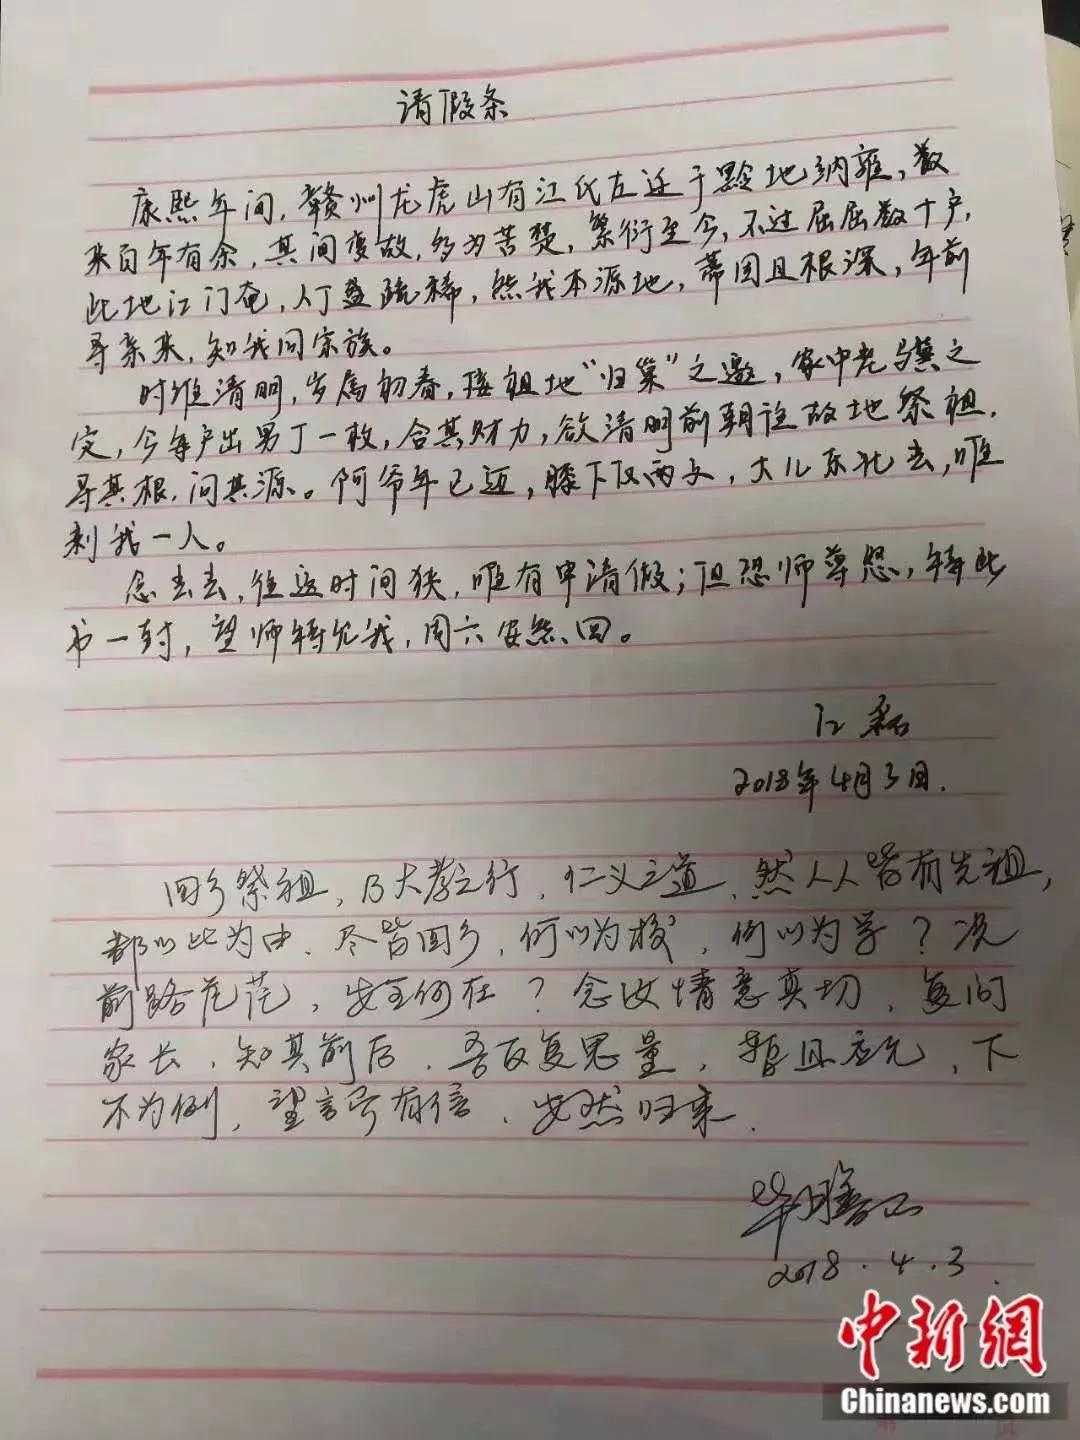 请假条
康熙年间，赣州龙虎山有江氏左迁于黔地纳雍，数
来百年有余，其间变故，多为苦楚，繁衍至今，不过屈屈数十户，
此地江门奄，人丁盈疏稀，然我本源地，蒂固且根深，年前
寻亲来，知我同宗族。
时维清明，岁属初春，接祖地“归巢”之邀，家中老与冀之
定，今每户出男丁一枚，合其财力，欲清明前朝往故地祭祖，
寻其根，问其源。阿爷年已迈，膝下仅两丈，大儿东北去，唯
剩我一人。
念去去，往返时间狭，唯有申请假；但恐师尊怒，特此
书一封，望师特允我，周六安然回。
江磊
2018年4月3日.
回乡祭祖，乃大孝之行，仁义之道、然人人皆有先祖，
都以此为由、尽皆回乡，何以为校，何以为学？况
前路茫茫，安全何在？念汝情意真切，复问
家长，知其前后，吾反复思量，暂且应允，下
不为例，望言而有信、安然归来.
毕臻江
2018.4.3.
中新网
Chinanews.com